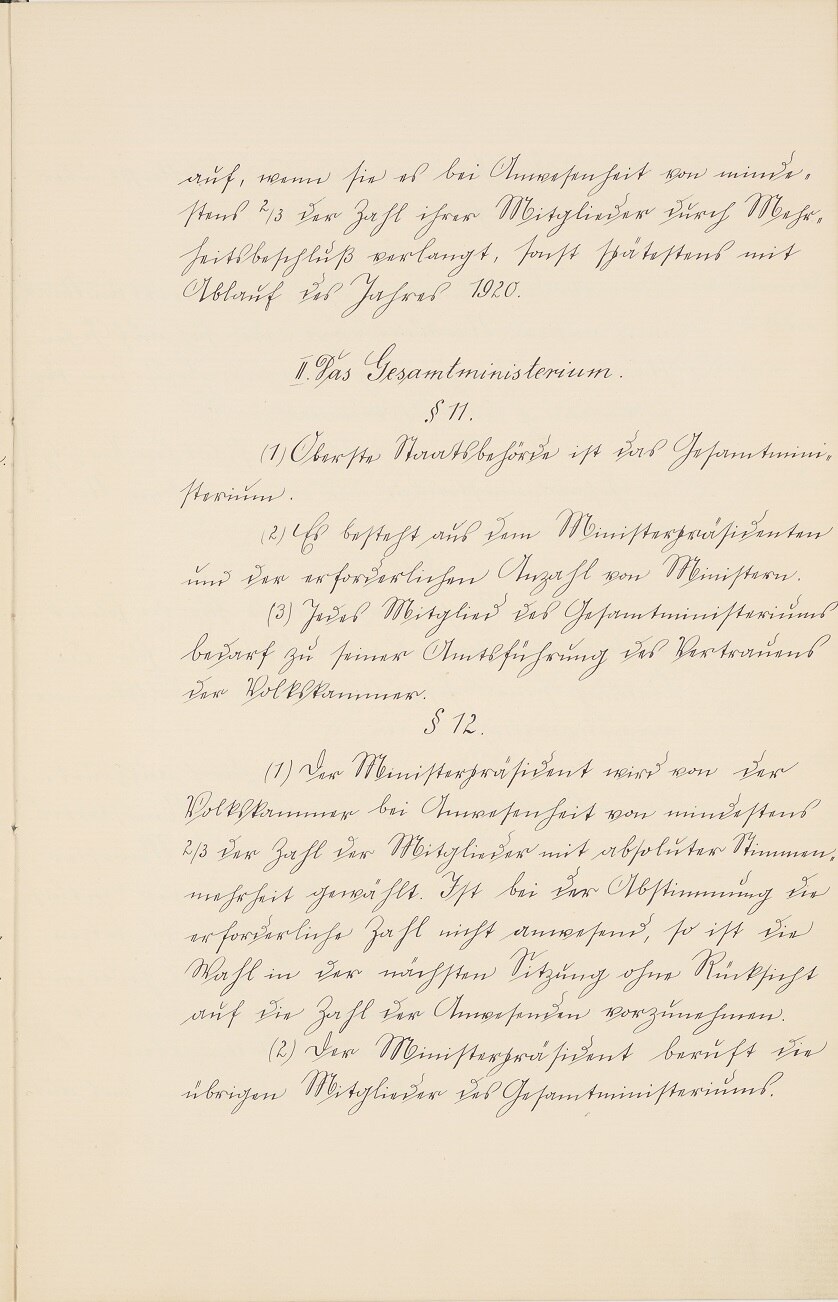 auf, wenn sie es bei Anwesenheit von minde-
stens 2/3 der Zahl ihrer Mitglieder durch Mehr-
heitsbeschluß verlangt, sonst spätestens mit
Ablauf des Jahres 1920.
II. Das Gesamtministerium.
§ 11.
(1) Oberste Staatsbehörde ist das Gesamtmini-
sterium.
(2) Es besteht aus dem Ministerpräsidenten
und der erforderlichen Anzahl von Ministern.
(3) Jedes Mitglied des Gesamtministeriums
bedarf zu seiner Amtsführung des Vertrauens
der Volkskammer.
§ 12.
(1) Der Ministerpräsident wird von der
Volkskammer bei Anwesenheit von mindestens
2/3 der Zahl der Mitglieder mit absoluter Stimmen-
mehrheit gewählt. Ist bei der Abstimmung die
erforderliche Zahl nicht anwesend, so ist die
Wahl in der nächsten Sitzung ohne Rücksicht
auf die Zahl der Anwesenden vorzunehmen.
(2) Der Ministerpräsident beruft die
übrigen Mitglieder des Gesamtministeriums.